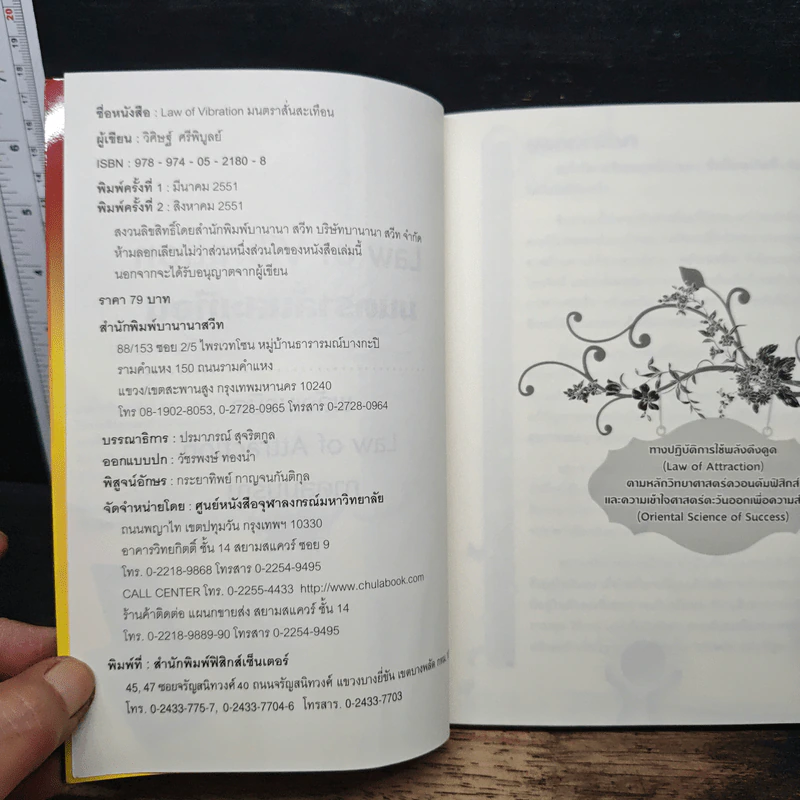 ชื่อหนังสือ : Law of Vibration มนตราสั่นสะเทือน
ผู้เขียน : วิศิษฐ์ ศรีพิบูลย์
ISBN : 978 - 974 - 05 - 2180 - 8
พิมพ์ครั้งที่ 1 : มีนาคม 2551
พิมพ์ครั้งที่ 2 : สิงหาคม 2551
สงวนลิขสิทธิ์โดยสำนักพิมพ์บานานา สวีท บริษัทบานานา สวีท จำกัด
ห้ามลอกเลียนไม่ว่าส่วนหนึ่งส่วนใดของหนังสือเล่มนี้
นอกจากจะได้รับอนุญาตจากผู้เขียน
ราคา 79 บาท
สำนักพิมพ์บานานาสวีท
88/153 ซอย 2/5 ไพรเวทโซน หมู่บ้านธารารมณ์บางกะปิ
รามคำแหง 150 ถนนรามคำแหง
แขวง/เขตสะพานสูง กรุงเทพมหานคร 10240
โทร 08-1902-8053, 0-2728-0965 โทรสาร 0-2728-0964
บรรณาธิการ : ปรมาภรณ์ สุจริตกูล
ออกแบบปก : วัชรพงษ์ ทองนำ
พิสูจน์อักษร : กระยาทิพย์ กาญจนกันติกุล
จัดจำหน่ายโดย : ศูนย์หนังสือจุฬาลงกรณ์มหาวิทยาลัย
ถนนพญาไท เขตปทุมวัน กรุงเทพฯ 10330
อาคารวิทยกิตติ์ ชั้น 14 สยามสแควร์ ซอย 9
โทร. 0-2218-9868 โทรสาร 0-2254-9495
CALL CENTER โทร. 0-2255-4433 http://www.chulabook.com
ร้านค้าติดต่อ แผนกขายส่ง สยามสแควร์ ชั้น 14
โทร. 0-2218-9889-90 โทรสาร 0-2254-9495
พิมพ์ที่ : สำนักพิมพ์ฟิสิกส์เซ็นเตอร์
45, 47 ซอยจรัญสนิทวงศ์ 40 ถนนจรัญสนิทวงศ์ แขวงบางยี่ขัน เขตบางพลัด กทม
โทร. 0-2433-775-7, 0-2433-7704-6 โทรสาร. 0-2433-7703
ทางปฏิบัติการใช้พลังดึงดูด
(Law of Attraction)
ตามหลักวิทยาศาสตร์ควอนตัมฟิสิกส์
และความเข้าใจศาสตร์ตะวันออกเพื่อความสำ
(Oriental Science of Success)